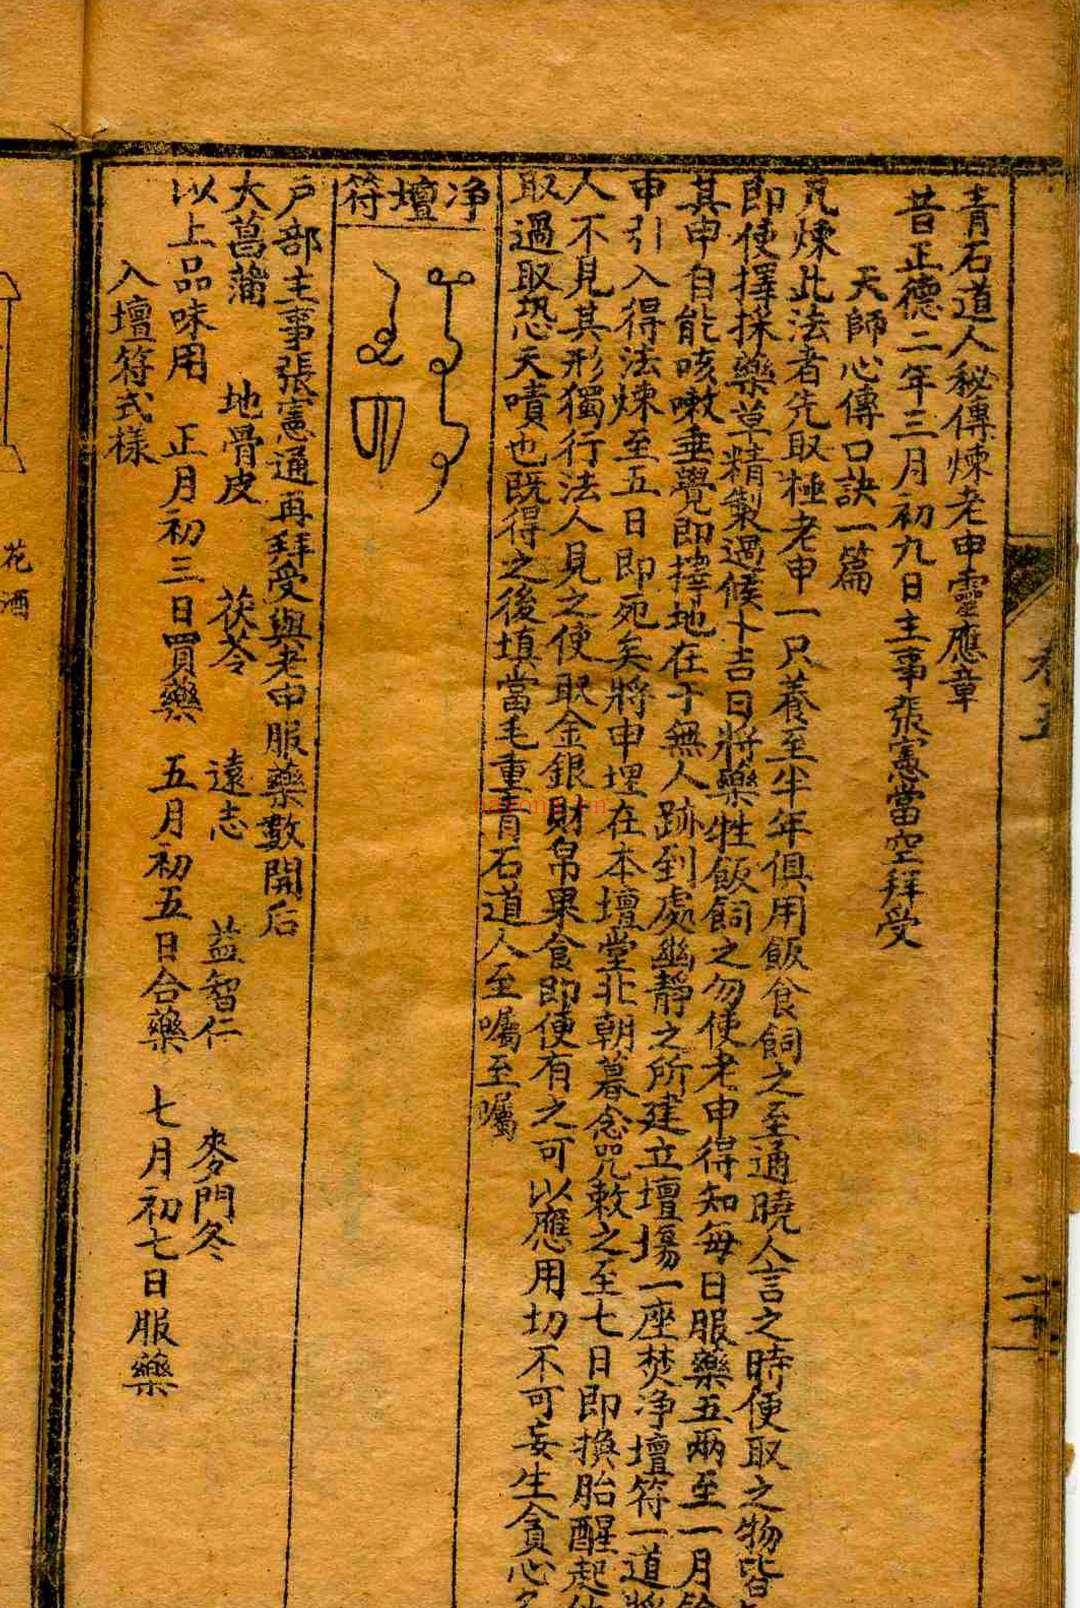 青石道人秘傳煉老申靈應章
昔正德二年三月初九日主事張憲當空拜受
天師心傳口訣一篇
凡煉此法者先取極老申一只養至半年俱用飯食飼之至通曉人言之時便取之物皆
即使擇採藥草精製過候卜吉日將藥牲飯飼之勿使老申得知每日服藥五兩至一月餘
其申自能咳嗽垂覺即擇地在于無人跡到處幽靜之所建立壇場一座焚净壇符一道將
申引入得法煉至五日即死矣將申埋在本壇堂北朝暮念咒敕之至七日即換胎醒起
人不見其形獨行法人見之使取金銀財帛果食即便有之可以應用切不可妄生貪心
取過取恐天嘖也既得之後填當毛重青石道人至囑至囑
净壇符
户部主事張憲通再拜受與老申服藥數開后
大菖蒲 地骨皮 茯苓 遠志 益智仁 麥門冬
以上品味用 正月初三日買藥 五月初五日合藥 七月初七日服藥
入壇符式樣
花酒
二十一